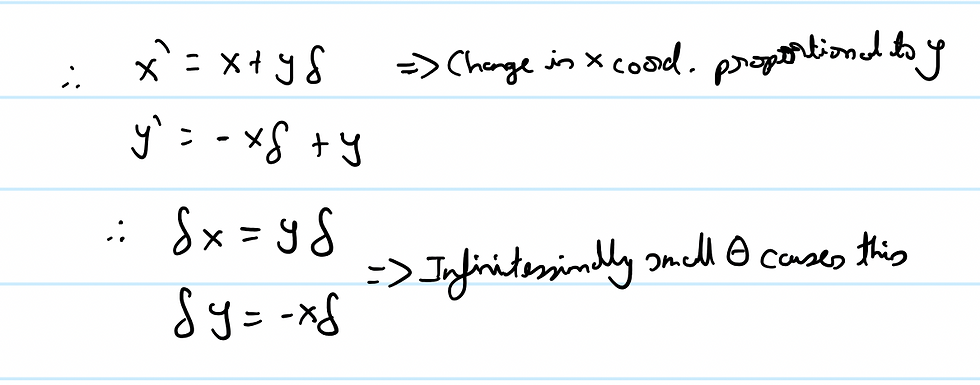 ∴ x' = x + yδ => Change in x coord. proportional to y
y' = -xδ + y
∴ δx = yδ
=> Infinitessimally small θ causes this
δy = -xδ